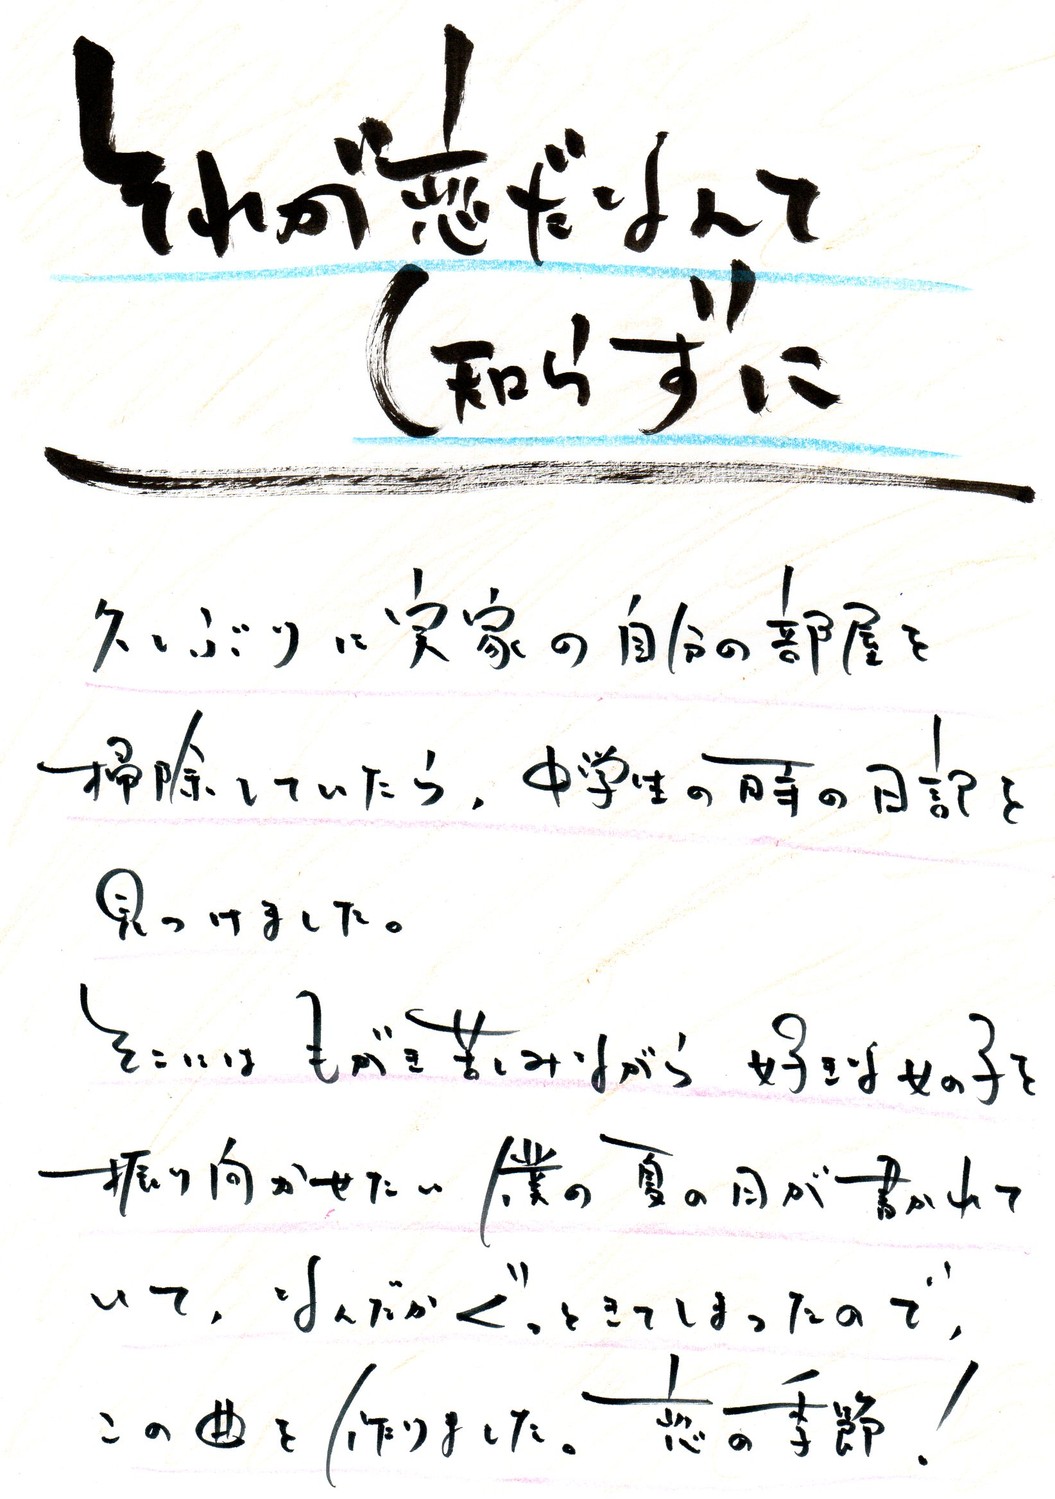 それが恋だなんて
知らずに
久しぶりに実家の自分の部屋を
掃除していたら、中学生の時の日記を
見つけました。
そこにはもがき苦しみながら 好きな女の子を
振り向かせたい 僕の夏の日が書かれて
いて、なんだかぐっときてしまったので、
この曲を作りました。 恋の季節!